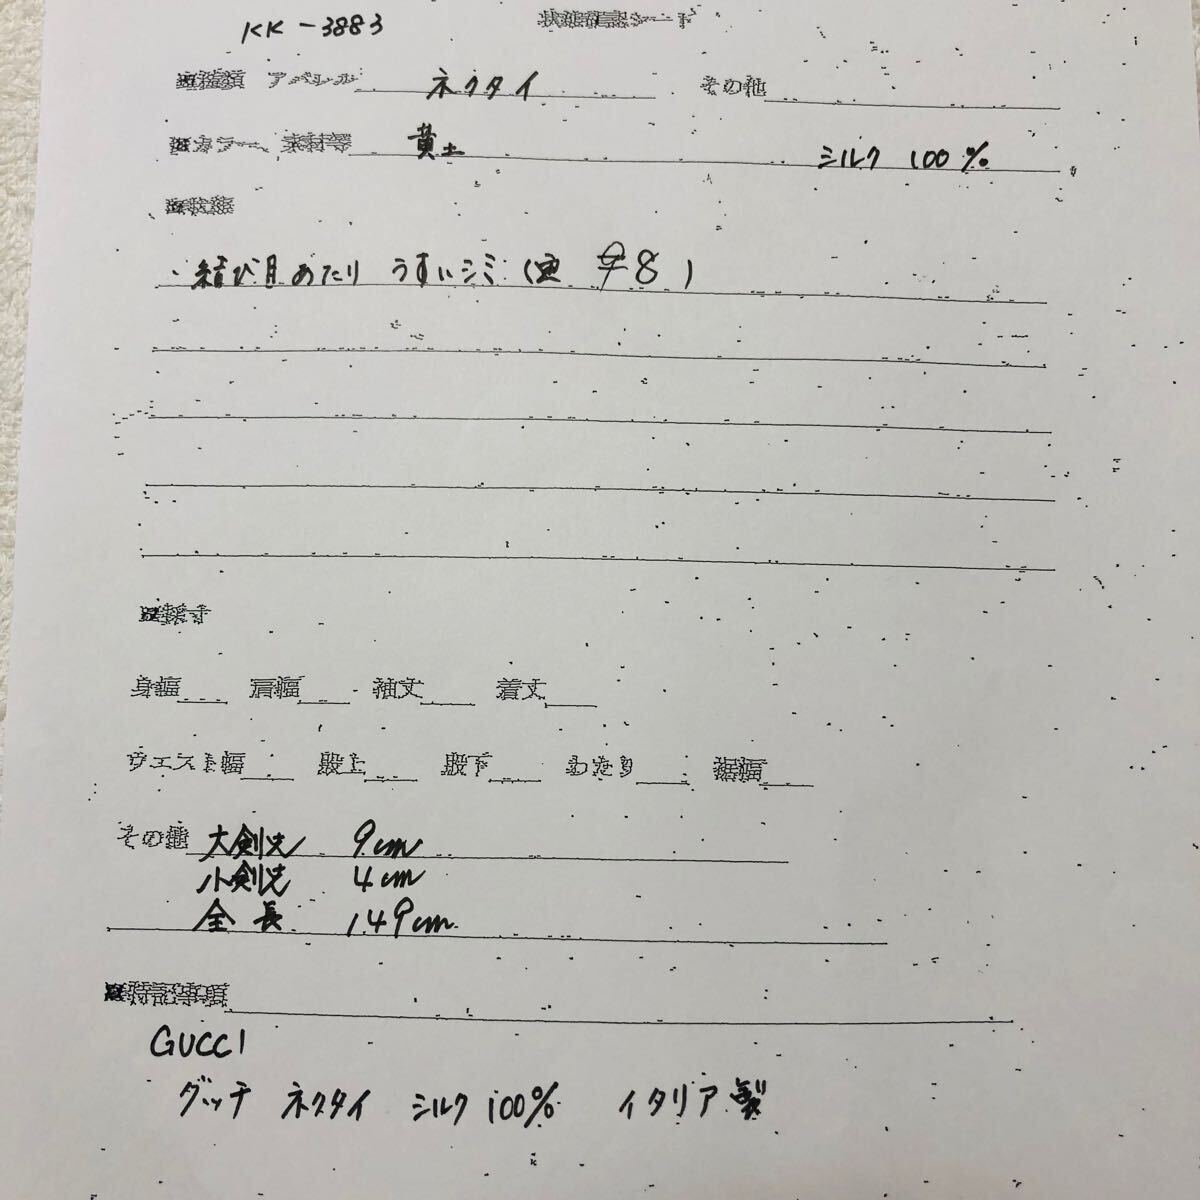 KK-3883
状態確認シート
■種類 アパレル ネクタイ その他
■カラー、素材等 黄土 シルク 100%
■状態
・結び目あたり うすいシミ (
8)
■採寸
身幅 肩幅 袖丈 着丈
ウエスト幅 股上 股下 わたり 裾幅
その他 大剣先 9cm
小剣先 4cm
全長 149cm
■特記事項
GUCCI
グッチ ネクタイ シルク100% イタリア製